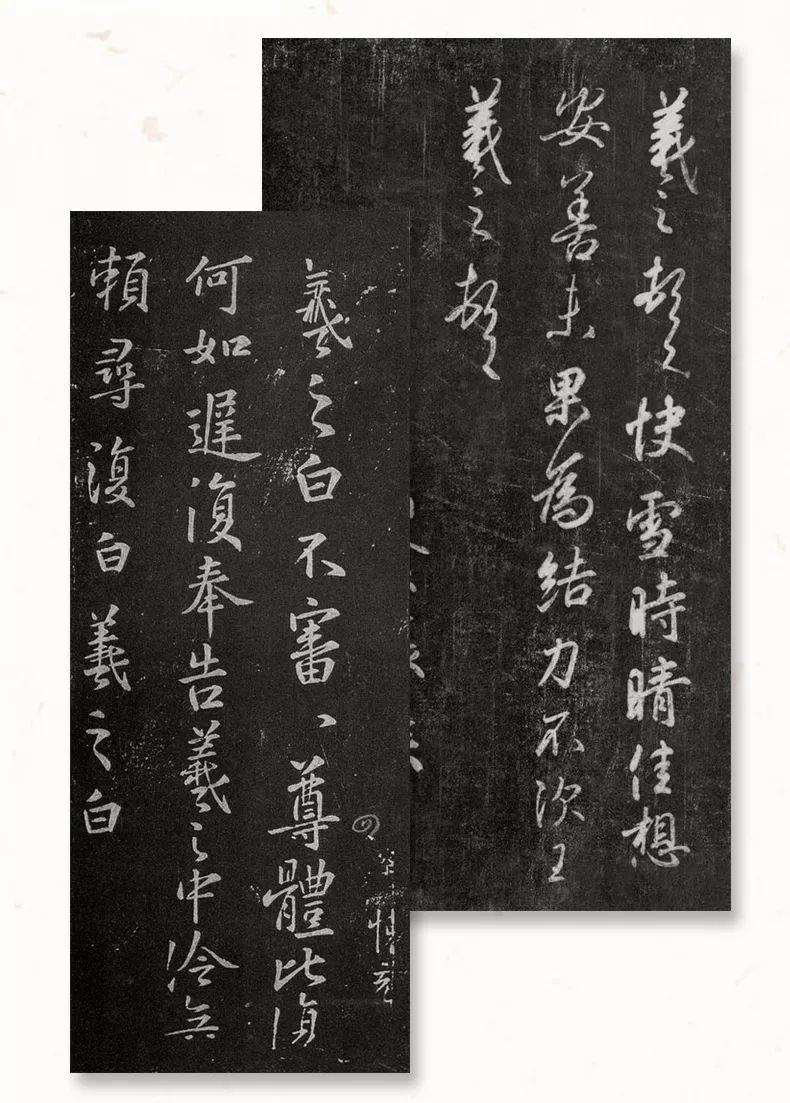 羲之頓首快雪時晴佳想
安善未果為結力不次王
羲之頓首
羲之白不審、尊體比復
何如遲復奉告羲之中冷無
賴尋復白羲之白